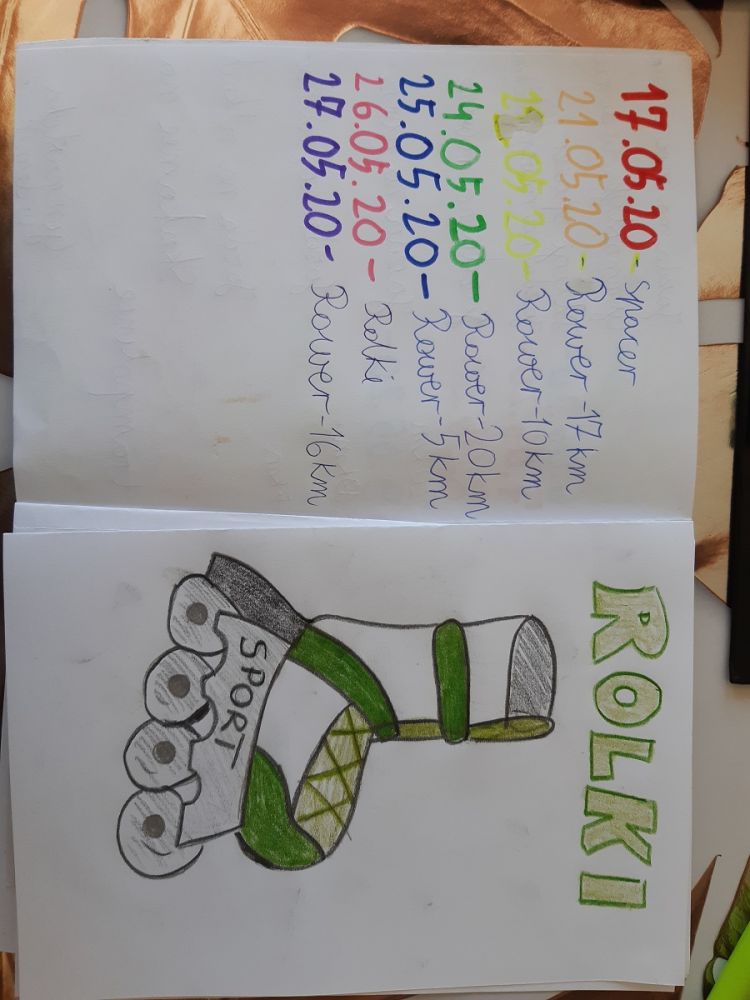 17.05.20- spacer
21.05.20- Rower-17km
.05.20- Rower-10km
24.05.20- Rower-20km
25.05.20- Rower-5km
26.05.20- Rolki
27.05.20- Rower-16km
ROLKI
SPORT